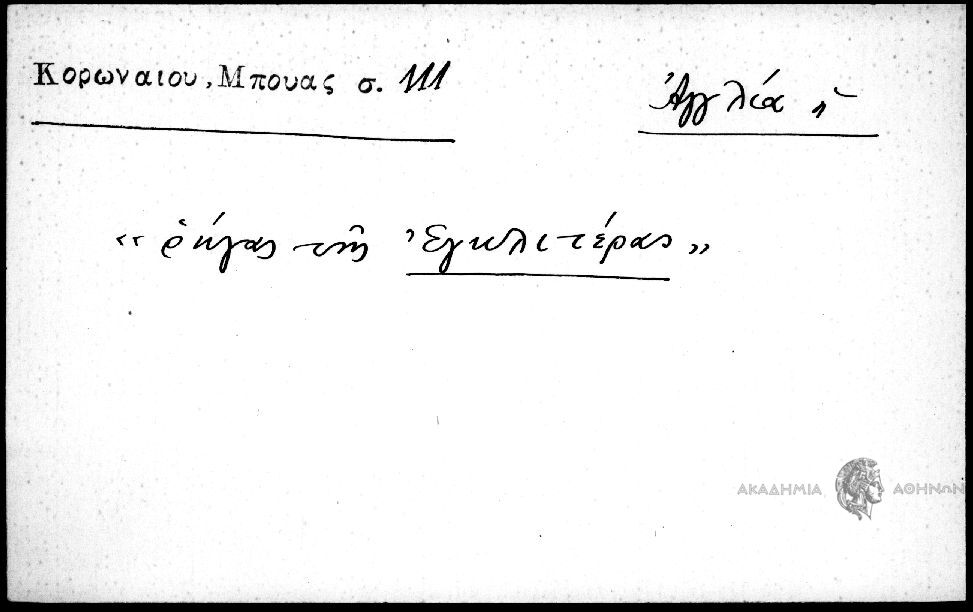 Κορωναιου, Μπουας σ. 111
Ἀγγλία ἡ
«ῥήγας τῆς Ἐγκλιτέρας»
ΑΚΑΔΗΜΙΑ ΑΘΗΝΩΝ